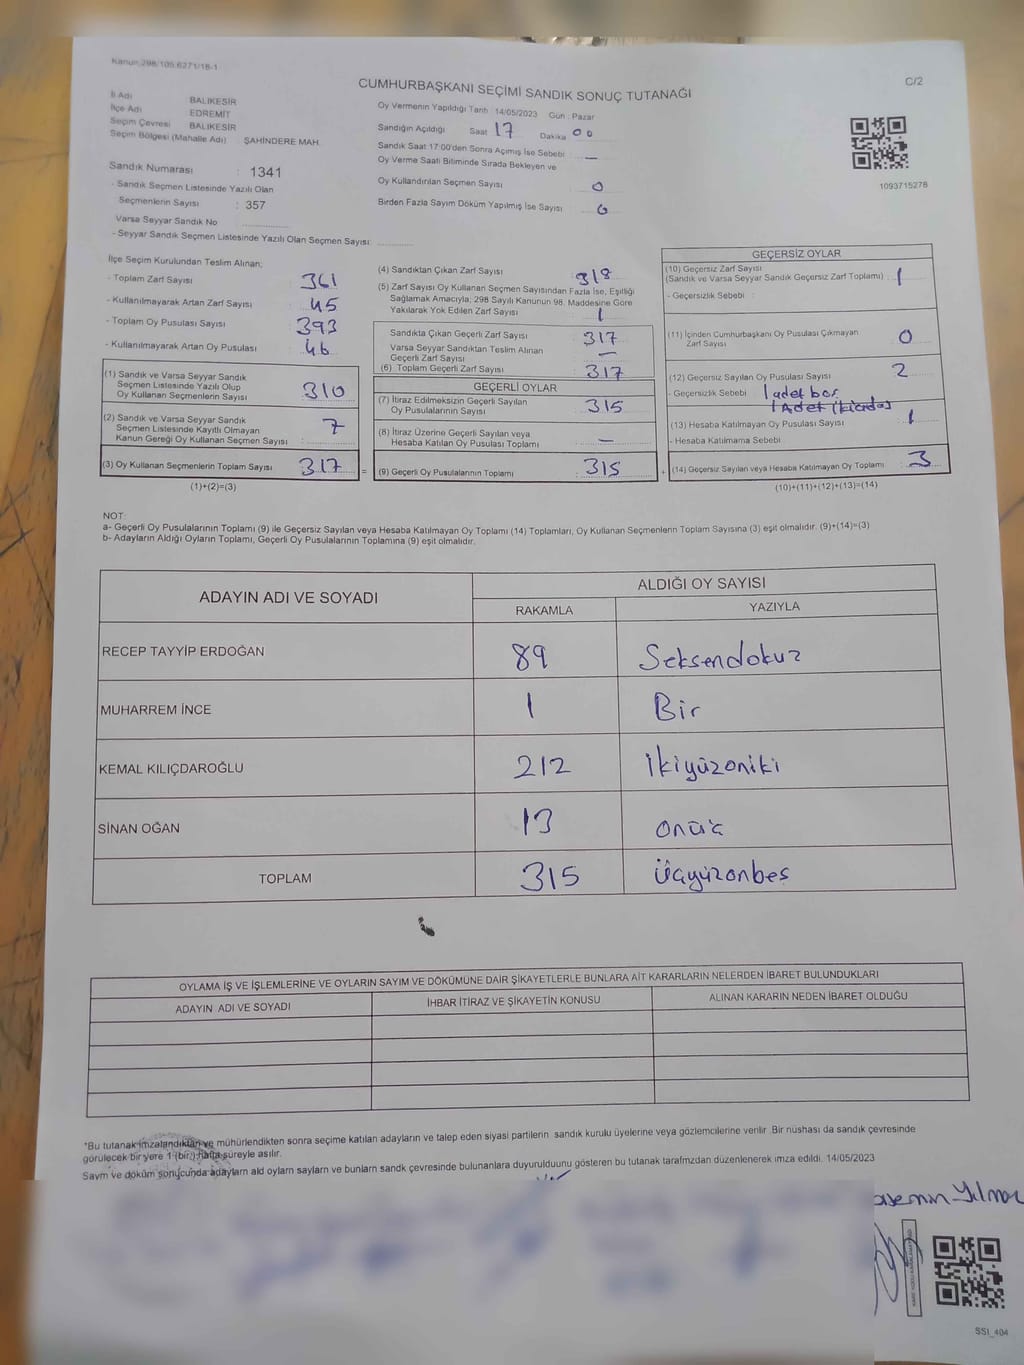 Kanun:298/105,6271/18-1
CUMHURBAŞKANI SEÇİMİ SANDIK SONUÇ TUTANAĞI
C/2
İl Adı BALIKESİR
İlçe Adı EDREMİT
Seçim Çevresi BALIKESİR
Seçim Bölgesi (Mahalle Adı) ŞAHİNDERE MAH.
Sandık Numarası : 1341
- Sandık Seçmen Listesinde Yazılı Olan
Seçmenlerin Sayısı : 357
Varsa Seyyar Sandık No
- Seyyar Sandık Seçmen Listesinde Yazılı Olan Seçmen Sayısı:
Oy Vermenin Yapıldığı Tarih : 14/05/2023 Gün : Pazar
Sandığın Açıldığı Saat 17 Dakika 00
Sandık Saat 17:00'den Sonra Açımış İse Sebebi : —
Oy Verme Saati Bitiminde Sırada Bekleyen ve
Oy Kullandırılan Seçmen Sayısı : 0
Birden Fazla Sayım Döküm Yapılmış İse Sayısı : 0
1093715278
İlçe Seçim Kurulundan Teslim Alınan;
- Toplam Zarf Sayısı : 361
- Kullanılmayarak Artan Zarf Sayısı : 45
- Toplam Oy Pusulası Sayısı : 393
- Kullanılmayarak Artan Oy Pusulası : 46
(1) Sandık ve Varsa Seyyar Sandık
Seçmen Listesinde Yazılı Olup
Oy Kullanan Seçmenlerin Sayısı : 310
(2) Sandık ve Varsa Seyyar Sandık
Seçmen Listesinde Kayıtlı Olmayan
Kanun Gereği Oy Kullanan Seçmen Sayısı : 7
(3) Oy Kullanan Seçmenlerin Toplam Sayısı : 317
(1)+(2)=(3)
(4) Sandıktan Çıkan Zarf Sayısı : 318
(5) Zarf Sayısı Oy Kullanan Seçmen Sayısından Fazla İse, Eşitliği
Sağlamak Amacıyla; 298 Sayılı Kanunun 98. Maddesine Göre
Yakılarak Yok Edilen Zarf Sayısı : 1
Sandıkta Çıkan Geçerli Zarf Sayısı : 317
Varsa Seyyar Sandıktan Teslim Alınan
Geçerli Zarf Sayısı : —
(6) Toplam Geçerli Zarf Sayısı : 317
GEÇERLİ OYLAR
(7) İtiraz Edilmeksizin Geçerli Sayılan
Oy Pusulalarının Sayısı : 315
(8) İtiraz Üzerine Geçerli Sayılan veya
Hesaba Katılan Oy Pusulası Toplamı : —
= (9) Geçerli Oy Pusulalarının Toplamı : 315
GEÇERSİZ OYLAR
(10) Geçersiz Zarf Sayısı
(Sandık ve Varsa Seyyar Sandık Geçersiz Zarf Toplamı) : 1
- Geçersizlik Sebebi :
(11) İçinden Cumhurbaşkanı Oy Pusulası Çıkmayan
Zarf Sayısı : 0
(12) Geçersiz Sayılan Oy Pusulası Sayısı : 2
- Geçersizlik Sebebi : 1 adet boş
1 Adet
(13) Hesaba Katılmayan Oy Pusulası Sayısı : 1
- Hesaba Katılmama Sebebi
+ (14) Geçersiz Sayılan veya Hesaba Katılmayan Oy Toplamı : 3
(10)+(11)+(12)+(13)=(14)
NOT:
a- Geçerli Oy Pusulalarının Toplamı (9) ile Geçersiz Sayılan veya Hesaba Katılmayan Oy Toplamı (14) Toplamları, Oy Kullanan Seçmenlerin Toplam Sayısına (3) eşit olmalıdır. (9)+(14)=(3)
b- Adayların Aldığı Oyların Toplamı, Geçerli Oy Pusulalarının Toplamına (9) eşit olmalıdır.
ADAYIN ADI VE SOYADI ALDIĞI OY SAYISI
RAKAMLA YAZIYLA
RECEP TAYYİP ERDOĞAN 89 Seksendokuz
MUHARREM İNCE 1 Bir
KEMAL KILIÇDAROĞLU 212 İkiyüzoniki
SİNAN OĞAN 13 onüç
TOPLAM 315 Üçyüzonbeş
OYLAMA İŞ VE İŞLEMLERİNE VE OYLARIN SAYIM VE DÖKÜMÜNE DAİR ŞİKAYETLERLE BUNLARA AİT KARARLARIN NELERDEN İBARET BULUNDUKLARI
ADAYIN ADI VE SOYADI İHBAR İTİRAZ VE ŞİKAYETİN KONUSU ALINAN KARARIN NEDEN İBARET OLDUĞU
*Bu tutanak imzalandıktan ve mühürlendikten sonra seçime katılan adayların ve talep eden siyasi partilerin sandık kurulu üyelerine veya gözlemcilerine verilir. Bir nüshası da sandık çevresinde
görülecek bir yere 1 (bir) hafta süreyle asılır.
Sayım ve döküm sonucunda adayların ald oyların sayları ve bunların sandk çevresinde bulunanlara duyurulduunu gösteren bu tutanak tarafmzdan düzenlenerek imza edildi. 14/05/2023
Yılmaz
SSI_404